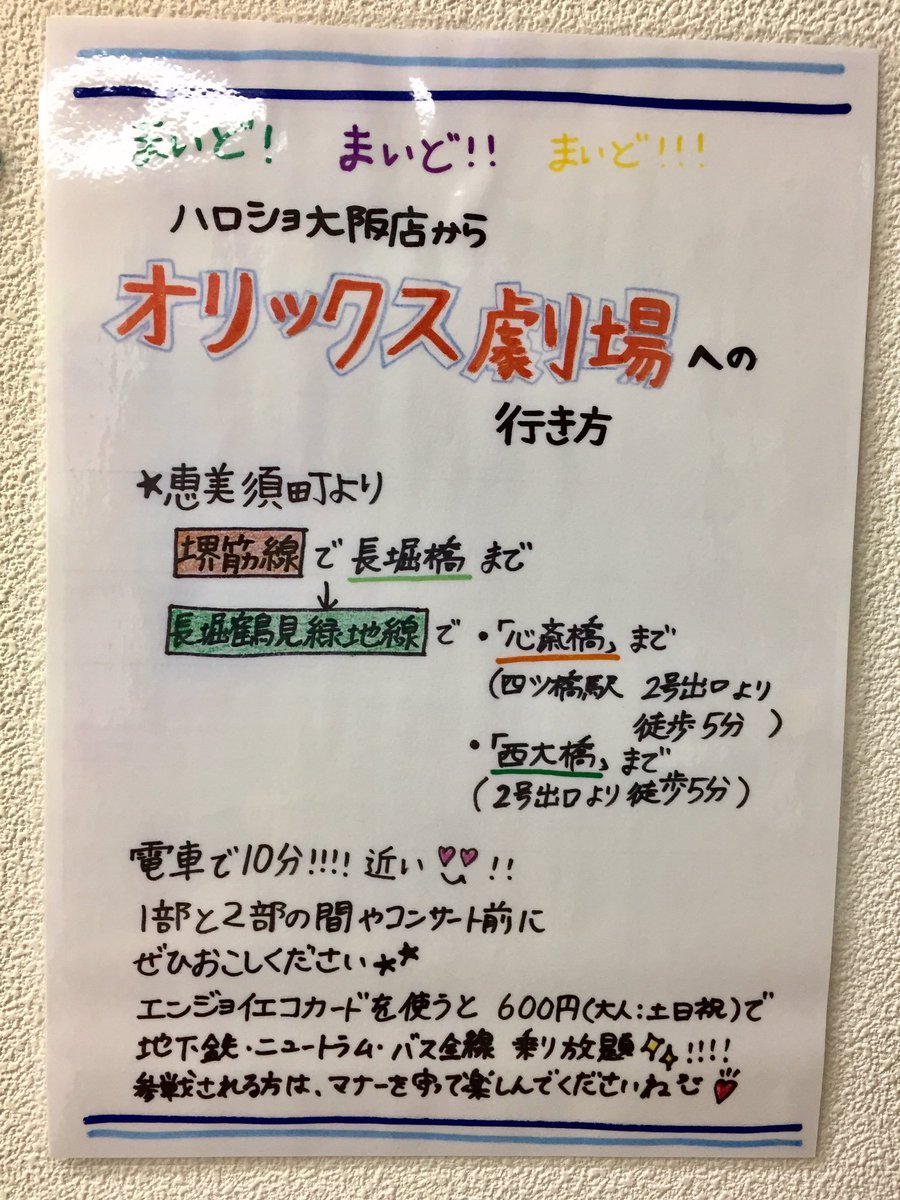 まいど! まいど!! まいど!!!
ハロショ大阪店から
オリックス劇場への
行き方
★恵美須町より
堺筋線で長堀橋まで
↓
長堀鶴見緑地線で・「心斎橋」まで
(四ツ橋駅 2号出口より
徒歩5分)
・「西大橋」まで
(2号出口より徒歩5分)
電車で10分!!!! 近い!!
1部と2部の間やコンサート前に
ぜひおこしください★★
エンジョイエコカードを使うと 600円(大人:土日祝)で
地下鉄・ニュートラム・バス全線 乗り放題!!!!
参戦される方は、マナーを守って楽しんでくださいね